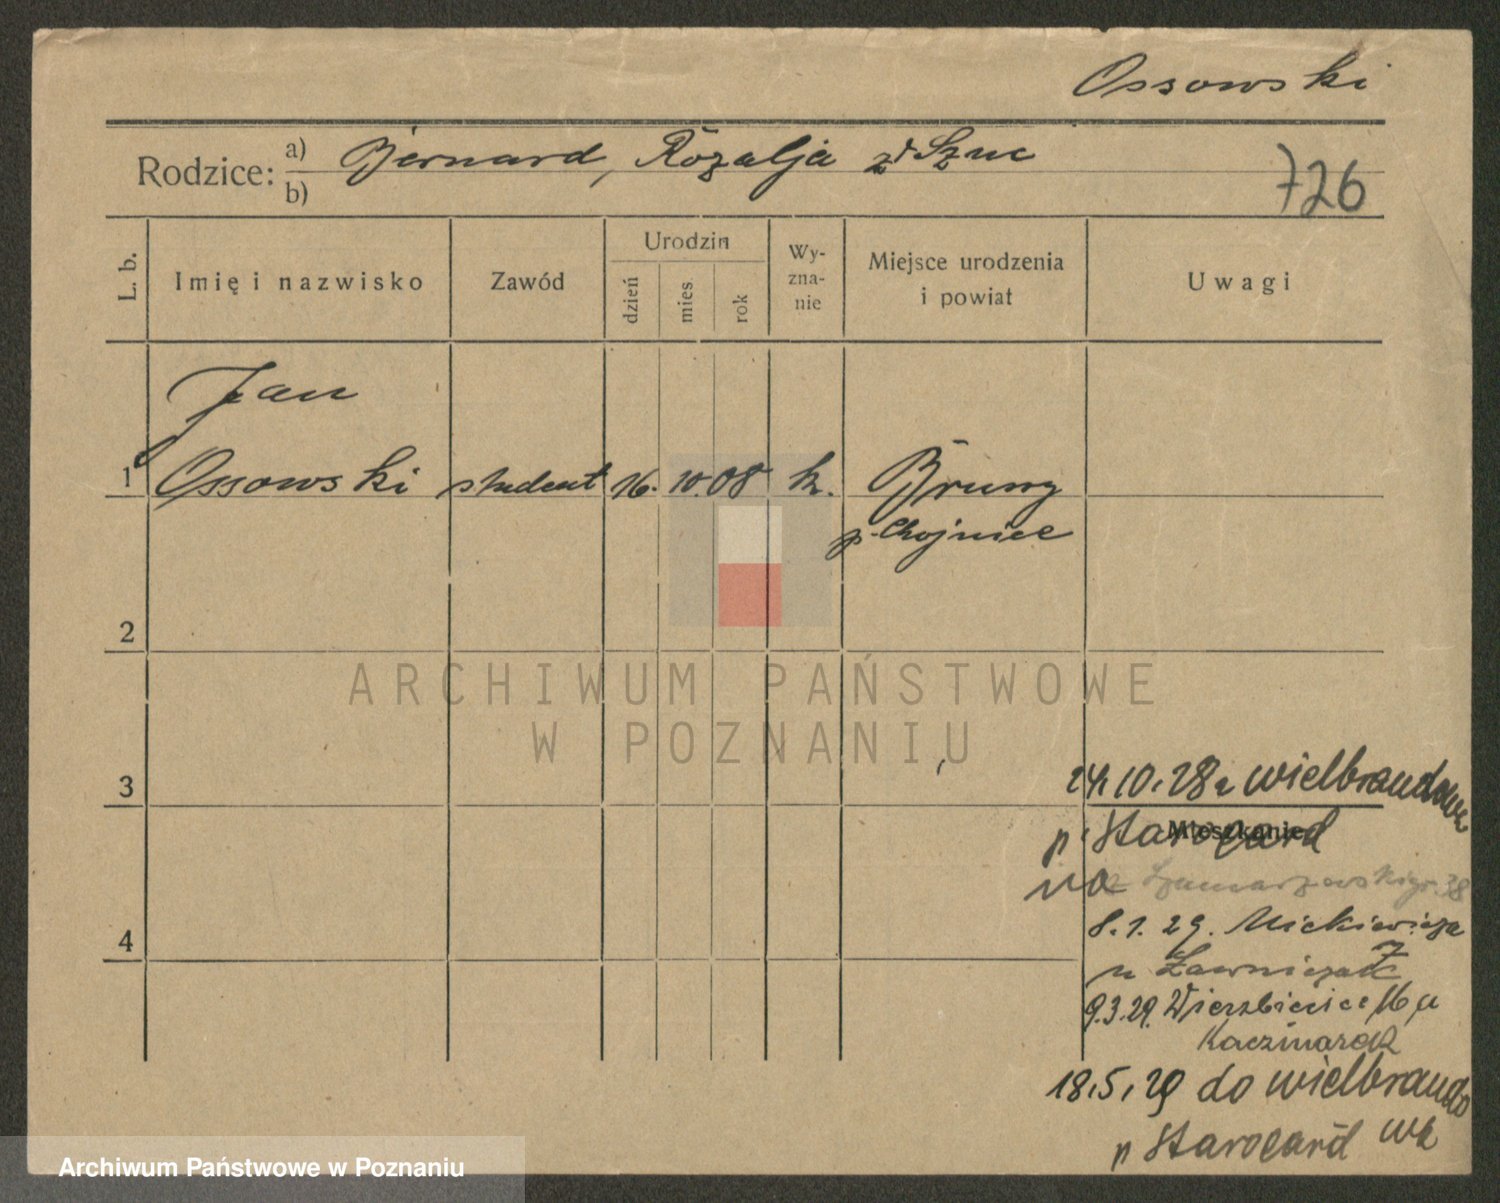 Ossowski
Rodzice: a) Bernard, Rozalja zd Szuc
b)
726
L. b.
Imię i nazwisko
Zawód
Urodzin
dzień
mies
rok
Wy-
zna-
nie
Miejsce urodzenia
i powiat
Uwagi
Jan
1 Ossowski student 16. 10. 08 k. Brusy
p. Chojnice
2
ARCHIWUM PAŃSTWOWE
W POZNANIU
3
24.10.28 z Wielbrandowa
Mieszkanie
p. Starogard
Szamarzewskiego 38
8.1.29. Mickiewicza
u Ławniczak
9.3.29. Wierzbięcice 16 u
Kaczmarek
4
18.5.29 do Wielbrando
wa
p Starogard
Archiwum Państwowe w Poznaniu